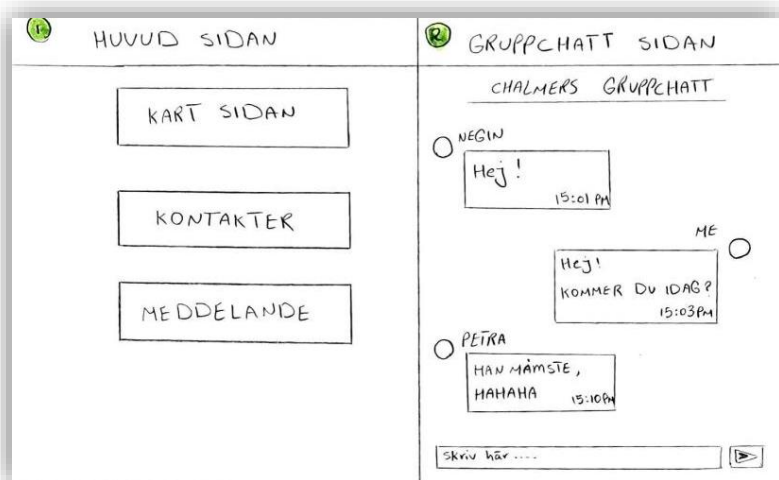 HUVUD SIDAN
KART SIDAN
KONTAKTER
MEDDELANDE
R GRUPPCHATT SIDAN
CHALMERS GRUPPCHATT
NEGIN
Hej!
15:01 PM
ME
Hej!
KOMMER DU IDAG?
15:03PM
PETRA
HAN MÅMSTE,
HAHAHA 15:10PM
Skriv här ....